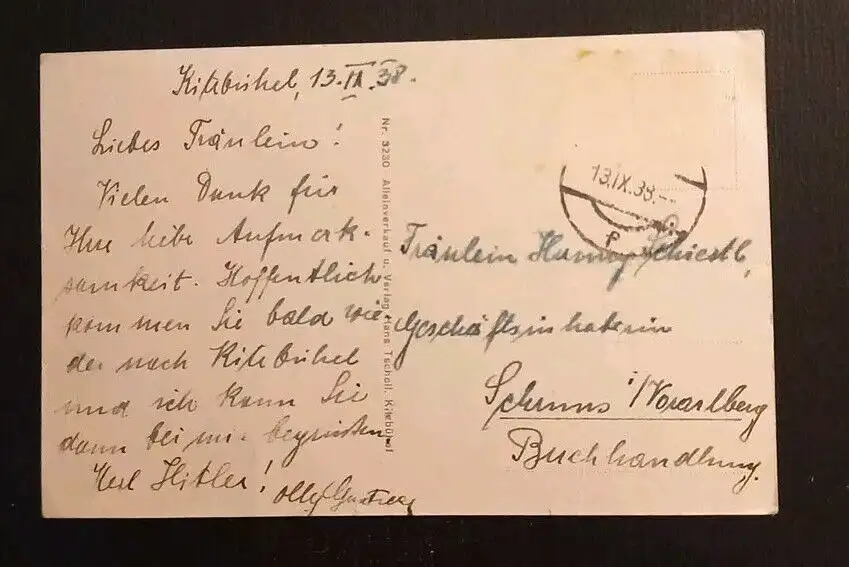 Kitzbühel, 13.IX.38.
Liebes Fräulein!
Vielen Dank für
Ihre liebe Aufmerk-
samkeit. Hoffentlich
kommen Sie bald wie-
der nach Kitzbühel
und ich kann Sie
dann bei mir begrüssen
Heil Hitler!
Nr. 3230 Alleinverkauf u. Verlag Hans Tscholl, Kitzbühel
13.IX.38.--
Fräulein Schiestl,
Geschäftsinhaberin
Schruns i/Vorarlberg
Buchhandlung.